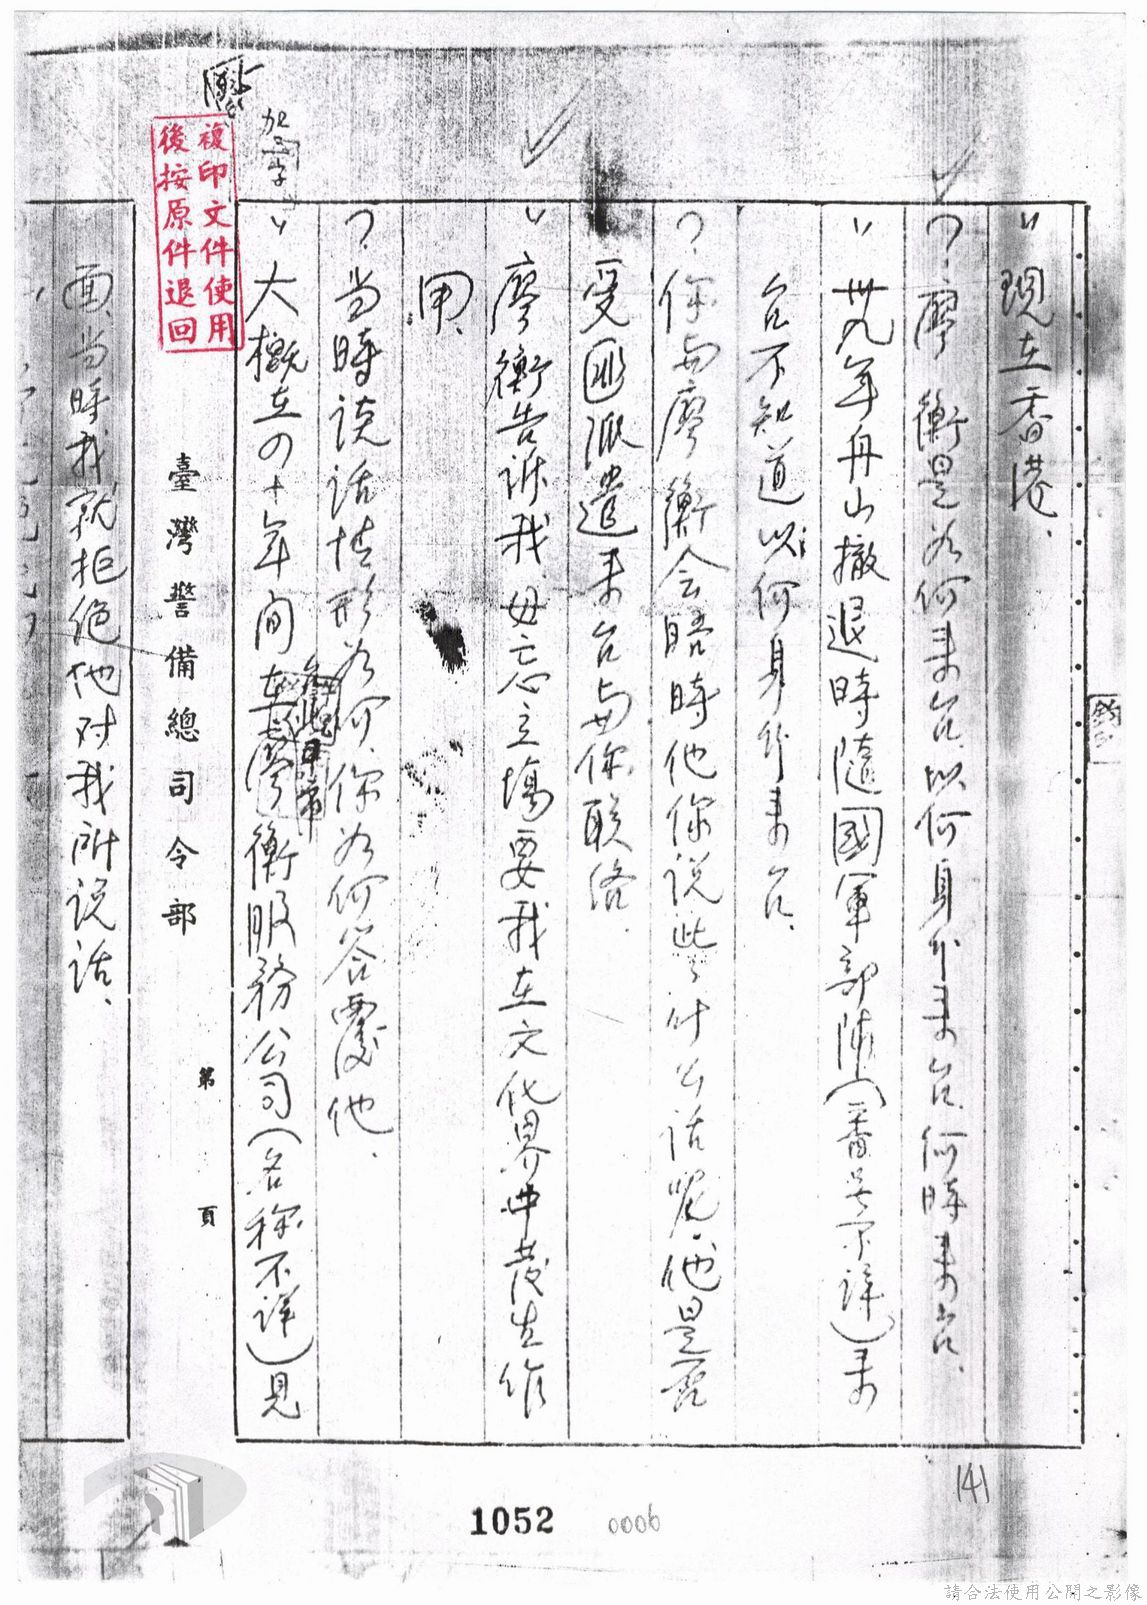 〃現在香港.
?廖 衡是为何来台.以何身分来台.何時来台.
〃卅九年舟山撤退時隨國軍部隊(番号不详)来
台不知道以何身分来台.
?你与廖衡会晤時他你说些什么话呢.他是否
受匪派遣来台与你联络.
〃廖衡告诉我.毋忘立場要我在文化界中發生作
用.
?当時谈话情形为何.你为何答覆他.
〃大概在四十年间在廖衡服務公司(名称不详)見
加
字
複印文件使用
後按原件退回
臺灣警備總司令部 第 頁
面.当時我就拒绝他对我所说话.
141
1052
0006
請合法使用公開之影像